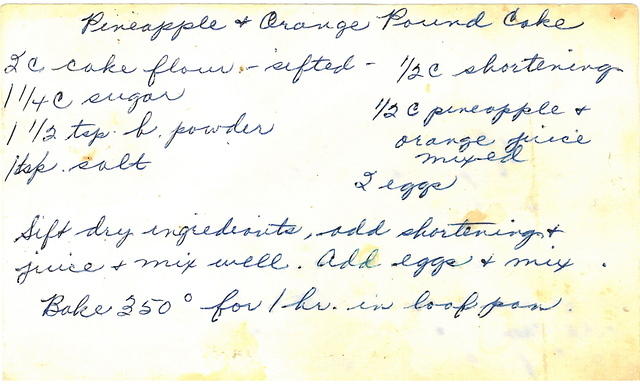 Pineapple & Orange Pound Cake
2 c cake flour - sifted -
1 1/4 c sugar
1 1/2 tsp. b. powder
1 tsp. salt
1/2 c shortening
1/2 c pineapple &
orange juice
mixed
2 eggs
Sift dry ingredients, add shortening &
juice & mix well. Add eggs & mix.
Bake 350° for 1 hr. in loaf pan.